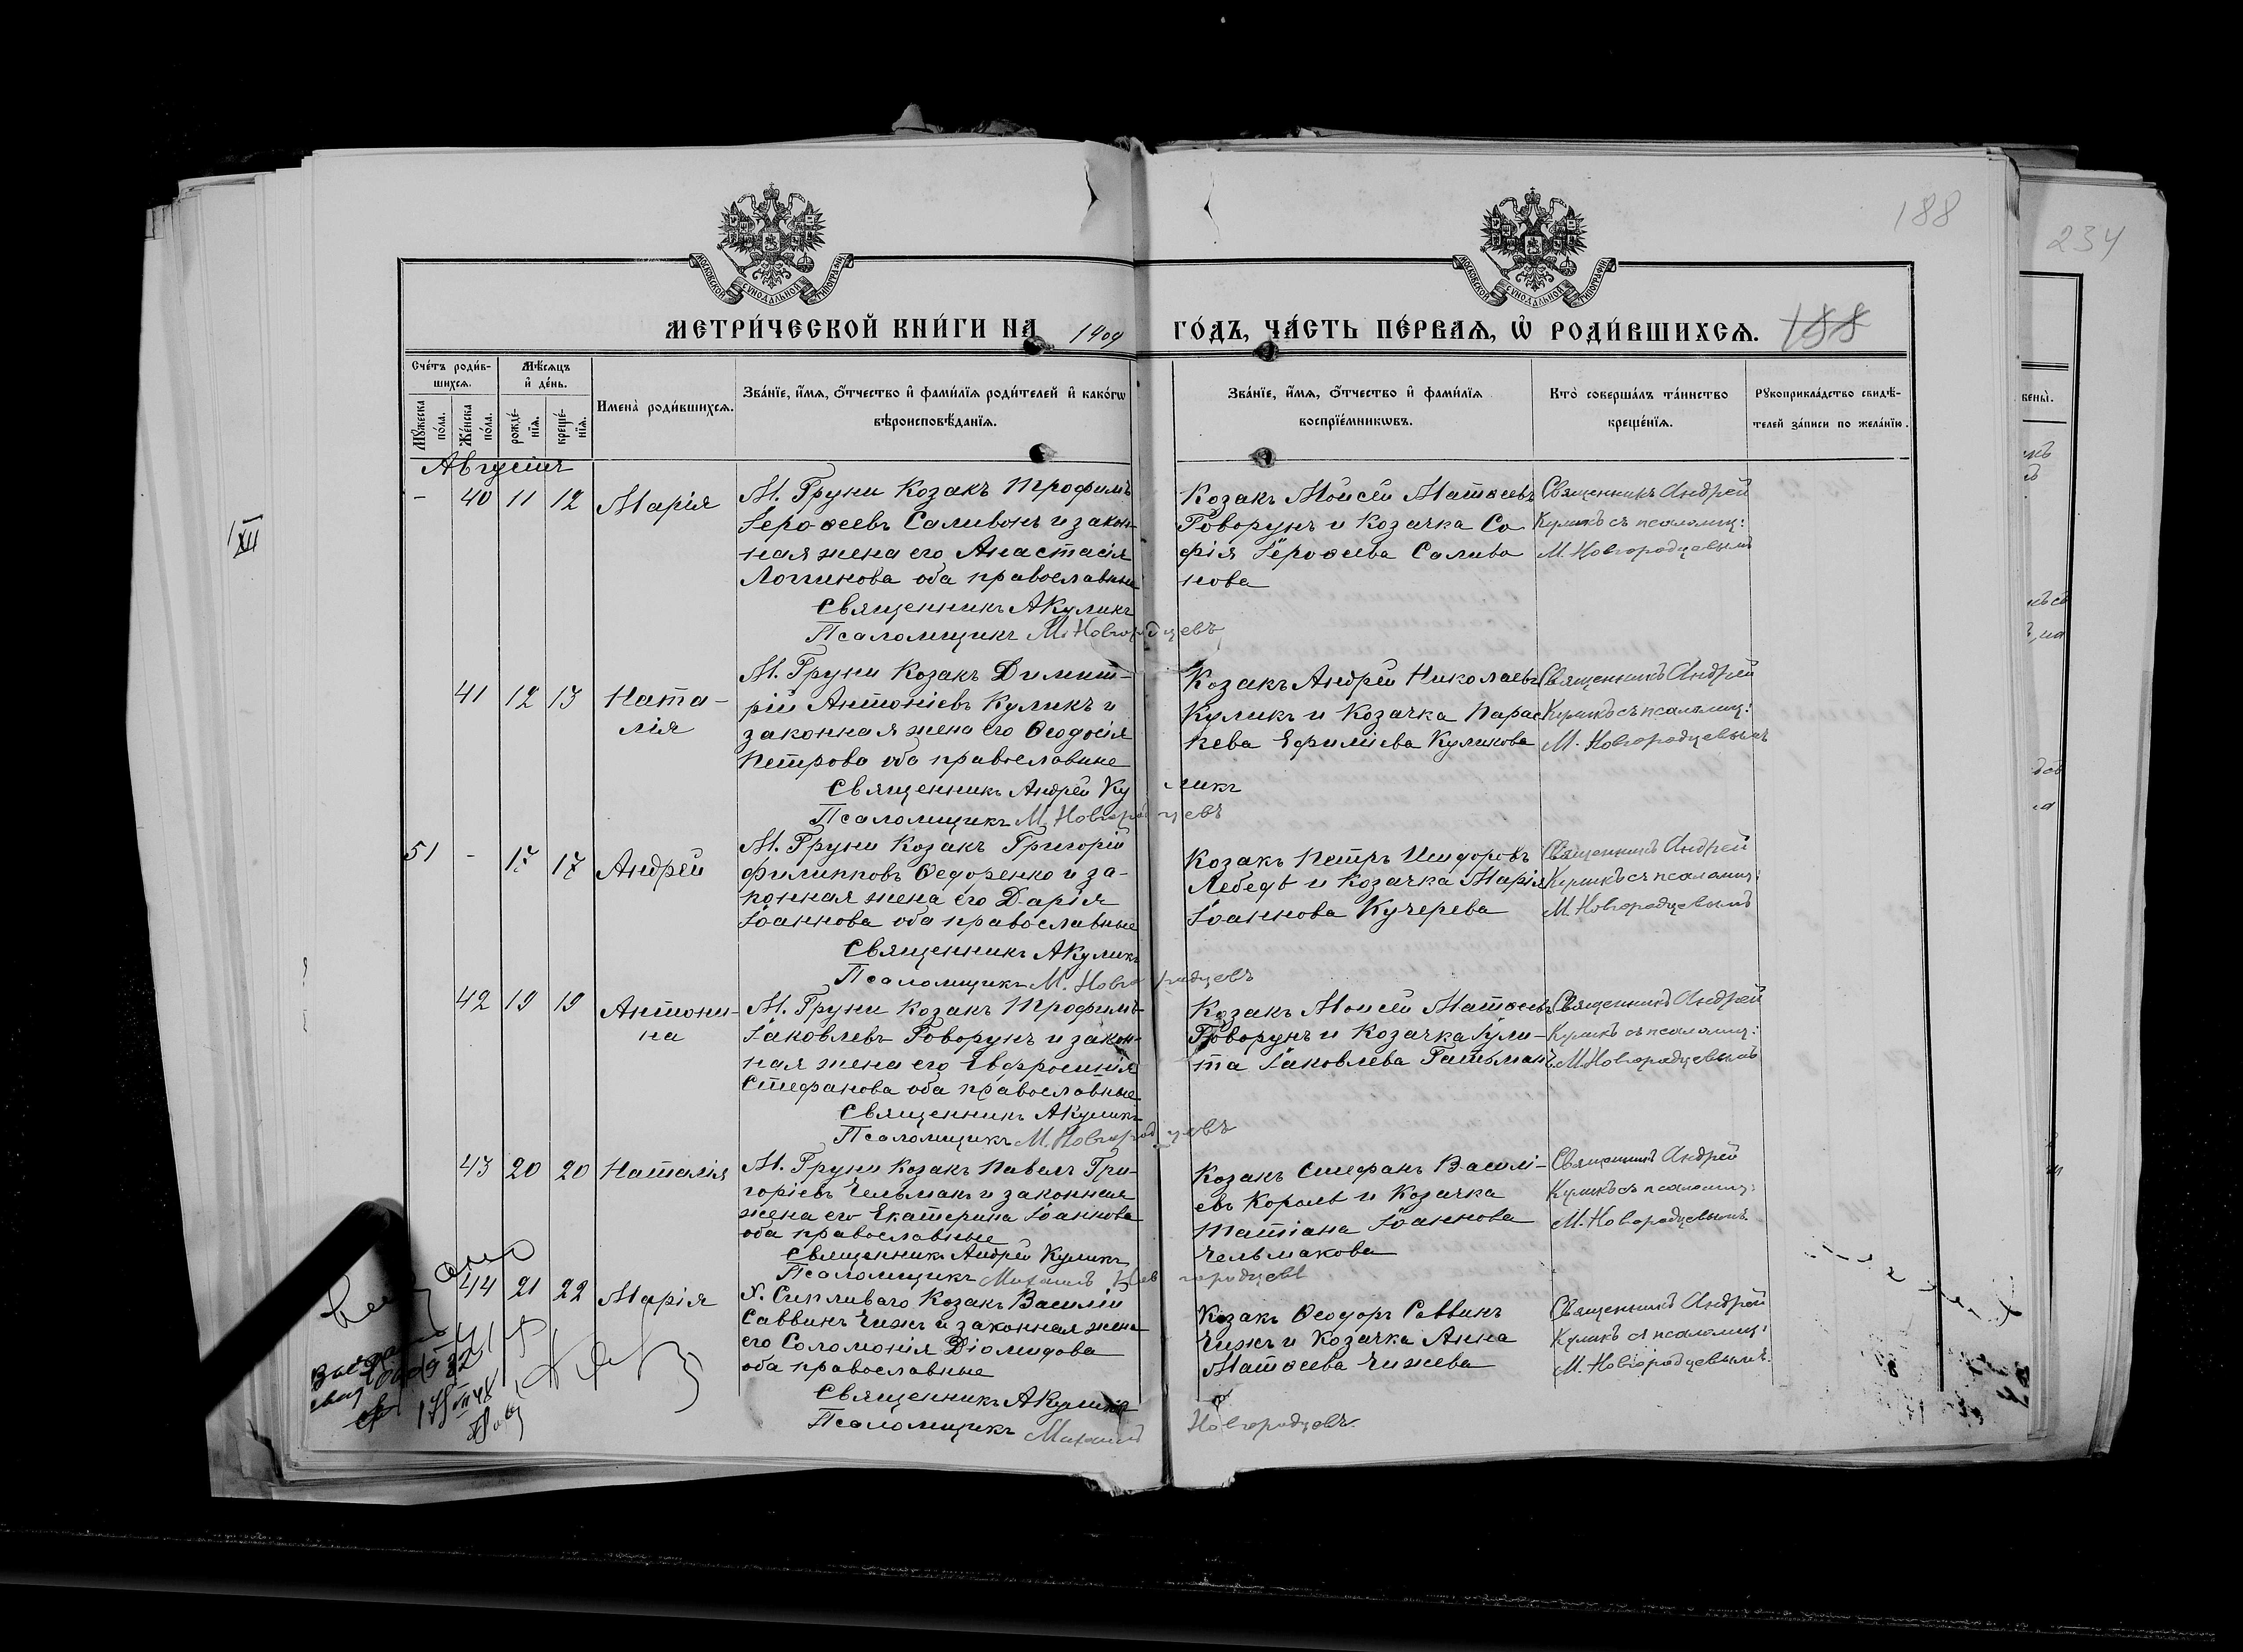 188
234
МОСКОВСКОЙ СУНОДАЛЬНОЙ ТИПОГРАФІИ
МОСКОВСКОЙ СУНОДАЛЬНОЙ ТИПОГРАФІИ
МЕТРИ́ЧЕСКОЙ КНИ́ГИ НА 1909 ГО́ДЪ, ЧА́СТЬ ПЕ́РВАѦ, Ѡ҆ РОДИ́ВШИХСѦ. 188
Сче́тъ роди́в-
шихсѧ.
Мѣ́сѧцъ
и҆ де́нь.
Мꙋжеска
по́ла.
Же́нска
по́ла.
рожде́-
нїѧ.
креще́-
нїѧ.
Имена̀ роди́вшихсѧ.
Зва́нїе, и҆́мѧ, ѻ҆́тчество и҆ фами́лїѧ роди́телей и҆ како́гѡ
вѣроисповѣ́данїѧ.
Зва́нїе, и҆́мѧ, ѻ҆́тчество и҆ фами́лїѧ
воспрїе́мникѡвъ.
Кто̀ соверша́лъ та́инство
креще́нїѧ.
Рꙋкоприкла́дство свидѣ́-
телей за́писи по жела́нїю.
Августъ
- 40 11 12 Марія
М. Груни Козакъ Трофимъ
Іероѳеевъ Саливонъ и закон-
ная жена его Анастасія
Логгинова оба православные
Священникъ АКуликъ
Псаломщикъ М. Новгородцевъ
Козакъ Моисей Матѳеевъ
Говорунъ и Козачка Со
фія Іероѳеева Саливо
нова
Священникъ Андрей
Куликъ съ псаломщ:
М. Новгородцевымъ
XII
41 12 13 Ната-
лія
М. Груни Козакъ Димит-
рій Антоніевъ Куликъ и
законная жена его Ѳеодосія
Петрова оба православные
Священникъ Андрей Куликъ
Псаломщикъ М. Новгородцевъ
Козакъ Андрей Николаевъ
Куликъ и Козачка Парас
кева Ефиміева Куликова
Священникъ Андрей
Куликъ съ псаломщ:
М. Новгородцевымъ
51 - 17 17 Андрей
М. Груни Козакъ Григорій
Филипповъ Ѳедоренко и за-
конная жена его Дарія
Іоаннова оба православные
Священникъ АКуликъ
Псаломщикъ М. Новгородцевъ
Козакъ Петръ Исидоровъ
Лебедь и Козачка Марія
Іоаннова Кучерева
Священникъ Андрей
Куликъ съ псаломщ:
М. Новгородцевымъ
42 19 19 Антони-
на
М. Груни Козакъ Трофимъ
Іаковлевъ Говорунъ и закон-
ная жена его Евфросинія
Стефанова оба православные
Священникъ АКуликъ
Псаломщикъ М. Новгородцевъ
Козакъ Моисей Матѳеевъ
Говорунъ и Козачка Іули-
та Іаковлева Гатьман
Священникъ Андрей
Куликъ съ псаломщ:
М. Новгородцевымъ
43 20 20 Наталія
М. Груни Козакъ Павелъ Гри-
горіевъ Чельмакъ и законная
жена его Екатерина Іоаннова
оба православные
Священникъ Андрей Куликъ
Псаломщикъ Михаилъ Новгородцевъ
Козакъ Стефанъ Васили-
евъ Король и Козачка
Татіана Іоаннова
Чельмакова
Священникъ Андрей
Куликъ съ псаломщ:
М. Новгородцевымъ
44 21 22 Марія
Х. Сипливаго Козакъ Василій
Саввинъ Чижъ и законная жена
его Соломонія Діомидова
оба православные
Священникъ АКуликъ
Псаломщикъ Михаилъ Новгородцевъ.
Козакъ Ѳеодоръ Саввинъ
Чижъ и Козачка Анна
Матѳеева Чижева
Священникъ Андрей
Куликъ съ псаломщ:
М. Новгородцевымъ.